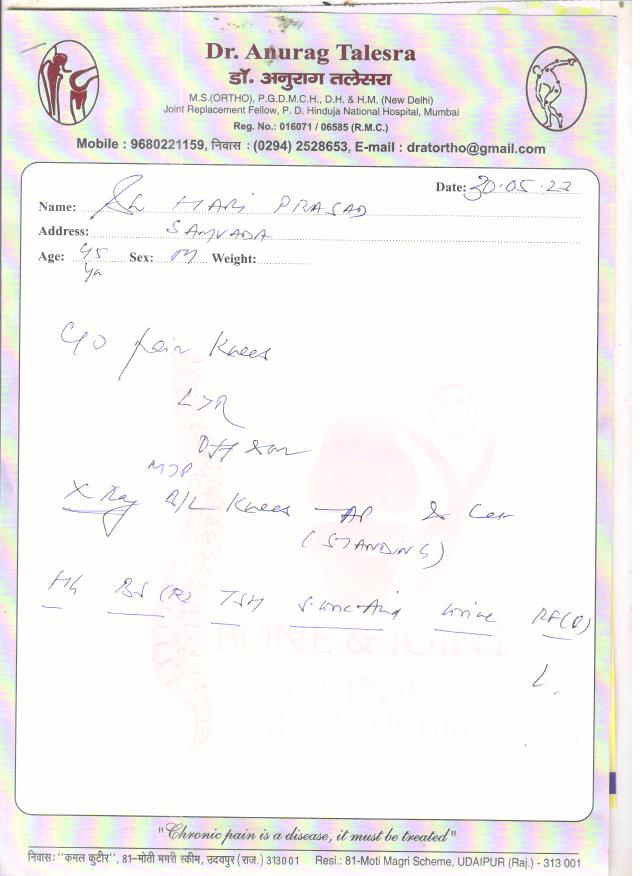 Dr. Anurag Talesra
डॉ. अनुराग तलेसरा
M.S.(ORTHO), P.G.D.M.C.H., D.H. & H.M. (New Delhi)
Joint Replacement Fellow, P. D. Hinduja National Hospital, Mumbai
Reg. No.: 016071 / 06585 (R.M.C.)
Mobile : 9680221159, निवास : (0294) 2528653, E-mail : dratortho@gmail.com
Date: 30.05.22
Name: HARI PRASAD
Address: SAMVADA
Age: 45 Sex: M Weight:
Yr
C/O Pain Knees
L>R
X Ray B/L Knees AP & Lat
(STANDING)
Hb BS (R) TSH S. Uric Acid Urine RF(Q)
BONE & JOINT
CLINIC
Mobility is life
"Chronic pain is a disease, it must be treated"
निवास: "कमल कुटीर", 81-मोती मगरी स्कीम, उदयपुर (राज.) 313001 Resi.: 81-Moti Magri Scheme, UDAIPUR (Raj.) - 313 001